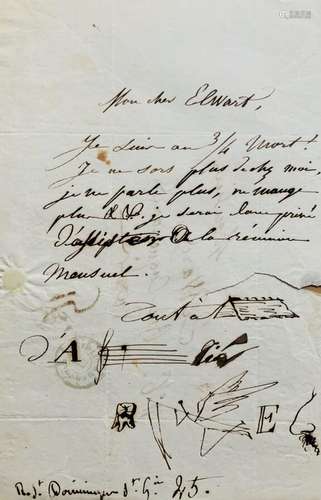 Mon cher Elwart,
Je suis au 3/4 mort!
Je ne sors plus de chez moi,
je ne parle plus, ne mange
plus &&. je serai donc privé
d'assister à la réunion
Mensuel.
Tout à
d'A
R E
Dominique St. Gin 25.